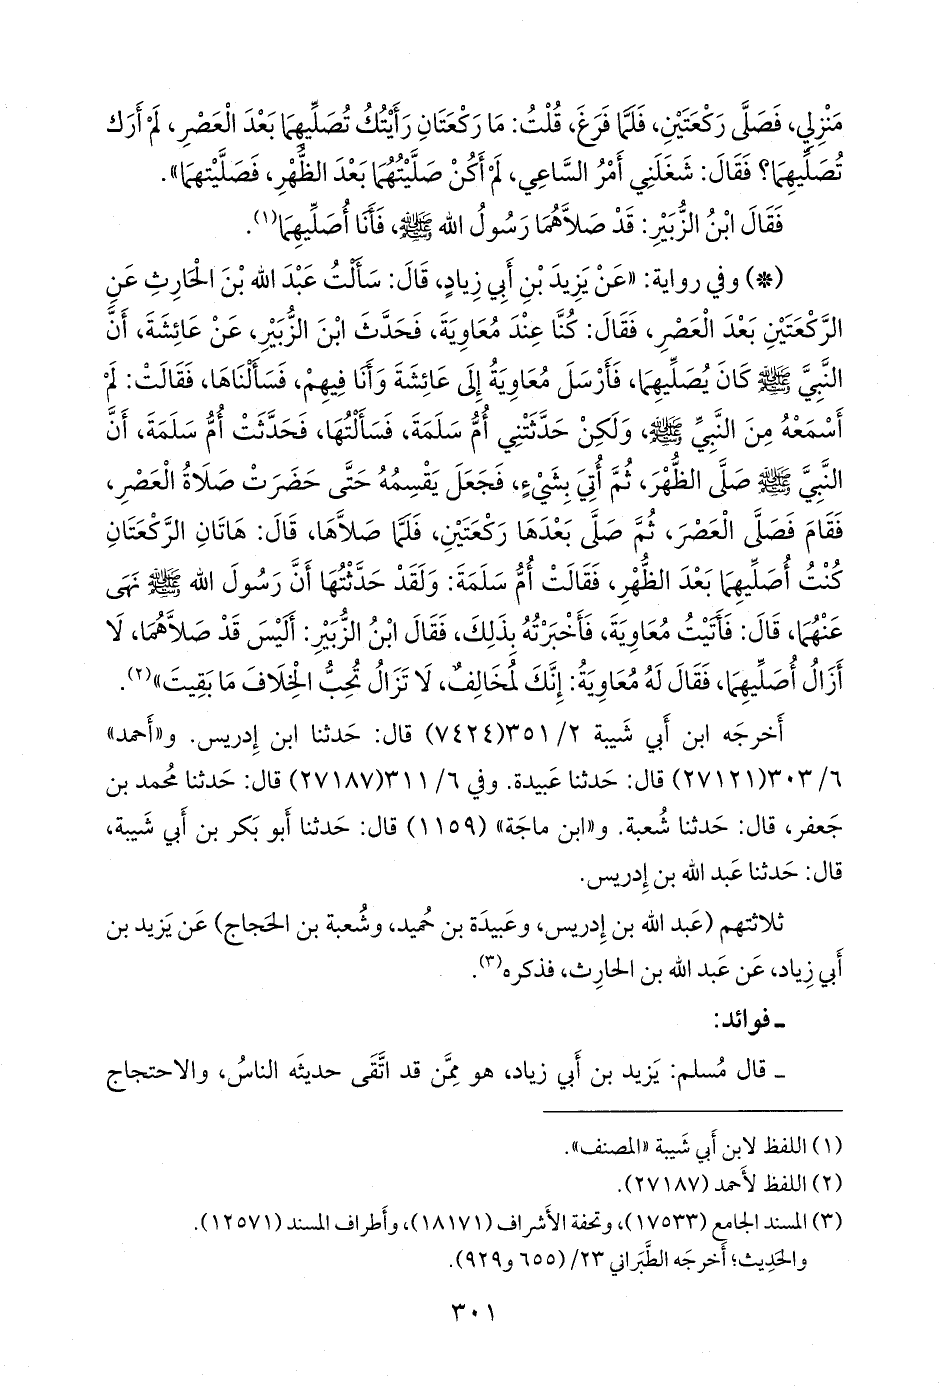 مَنْزِلِي، فَصَلَّى رَكْعَتَيْنِ، فَلَمَّا فَرَغَ، قُلْتُ: مَا رَكْعَتَانِ رَأَيْتُكَ تُصَلِّيهِمَا بَعْدَ الْعَصْرِ، لَمْ أَرَكَ
تُصَلِّيهِمَا؟ فَقَالَ: شَغَلَنِي أَمْرُ السَّاعِي، لَمْ أَكُنْ صَلَّيْتُهُمَا بَعْدَ الظُّهْرِ، فَصَلَّيْتهمَا».
فَقَالَ ابْنُ الزُّبَيْرِ: قَدْ صَلاَّهُمَا رَسُولُ الله ﷺ، فَأَنَا أُصَلِّيهِمَا(١).
(*) وفي رواية: «عَنْ يَزِيدَ بْنِ أَبِي زِيادٍ، قَالَ: سَأَلْتُ عَبْدَ الله بْنَ الْحَارِثِ عَنِ
الرَّكْعَتَيْنِ بَعْدَ الْعَصْرِ، فَقَالَ: كُنَّا عِنْدَ مُعَاوِيَةَ، فَحَدَّثَ ابْنَ الزُّبَيْرِ، عَنْ عَائِشَةَ، أَنَّ
النَّبِيَّ ﷺ كَانَ يُصَلِّيهِمَا، فَأَرْسَلَ مُعَاوِيَةُ إِلَى عَائِشَةَ وَأَنَا فِيهِمْ، فَسَأَلْنَاهَا، فَقَالَتْ: لَمْ
أَسْمَعْهُ مِنَ النَّبِيِّ ﷺ، وَلَكِنْ حَدَّثَتْنِي أُمُّ سَلَمَةَ، فَسَأَلْتُهَا، فَحَدَّثَتْ أُمُّ سَلَمَةَ، أَنَّ
النَّبِيَّ ﷺ صَلَّى الظُّهْرَ، ثُمَّ أُتِيَ بِشَيْءٍ، فَجَعَلَ يَقْسِمُهُ حَتَّى حَضَرَتْ صَلاَةُ الْعَصْرِ،
فَقَامَ فَصَلَّى الْعَصْرَ، ثُمَّ صَلَّى بَعْدَهَا رَكْعَتَيْنِ، فَلَمَّا صَلاَّهَا، قَالَ: هَاتَانِ الرَّكْعَتَانِ
كُنْتُ أُصَلِّيهِمَا بَعْدَ الظُّهْرِ، فَقَالَتْ أُمُّ سَلَمَةَ: وَلَقَدْ حَدَّثْتُهَا أَنَّ رَسُولَ الله ﷺ نَهَى
عَنْهُمَا، قَالَ: فَأَتَيْتُ مُعَاوِيَةَ، فَأَخْبَرْتُهُ بِذَلِكَ، فَقَالَ ابْنُ الزُّبَيْرِ: أَلَيْسَ قَدْ صَلاَّهُمَا، لاَ
أَزَالُ أُصَلِّيهِمَا، فَقَالَ لَهُ مُعَاوِيَةُ: إِنَّكَ لَمُخَالِفٌ، لاَ تَزَالُ تُحِبُّ الْخِلاَفَ مَا بَقِيتَ»(٢).
أَخرجَه ابن أَبي شَيبة ٢/ ٣٥١(٧٤٢٤) قال: حَدثنا ابن إِدريس. و«أَحمد»
٦/ ٣٠٣(٢٧١٢١) قال: حَدثنا عَبيدة. وفي ٦/ ٣١١(٢٧١٨٧) قال: حَدثنا مُحمد بن
جَعفر، قال: حَدثنا شُعبة. و«ابن ماجَة» (١١٥٩) قال: حَدثنا أَبو بَكر بن أَبي شَيبة،
قال: حَدثنا عَبد الله بن إِدريس.
ثلاثتهم (عَبد الله بن إِدريس، وعَبيدَة بن حُميد، وشُعبة بن الحَجاج) عَن يَزيد بن
أَبي زِياد، عَن عَبد الله بن الحارِث، فذكره(٣).
ـ فوائد:
ـ قال مُسلم: يَزيد بن أَبي زياد، هو مِمَّن قد اتَّقَى حديثَه الناسُ، والاحتجاج
(١) اللفظ لابن أَبي شَيبة «المصنف».
(٢) اللفظ لأَحمد (٢٧١٨٧).
(٣) المسند الجامع (١٧٥٣٣)، وتحفة الأَشراف (١٨١٧١)، وأَطراف المسند (١٢٥٧١).
والحَدِيث؛ أَخرجَه الطَّبَراني ٢٣/ (٦٥٥ و٩٢٩).
٣٠١